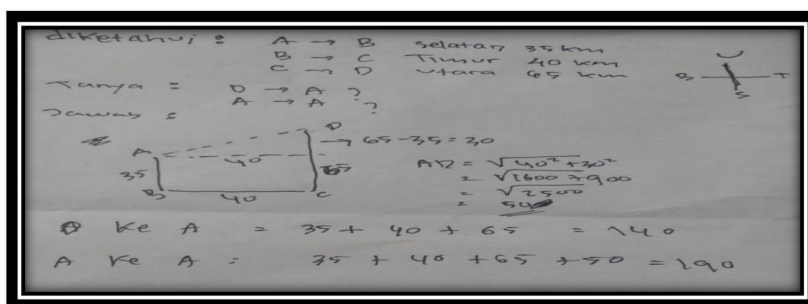 diketahui : A → B selatan 35 km
B → C Timur 40 km
C → D Utara 65 km
B T
U
S
Tanya = D → A ?
A → A ?
Jawab =
D
→ 65 - 35 = 30
A 40
35 65
B 40 C
AD = √40² + 30²
= √1600 + 900
= √2500
= 50
Ke A = 35 + 40 + 65 = 140
A Ke A = 35 + 40 + 65 + 50 = 190